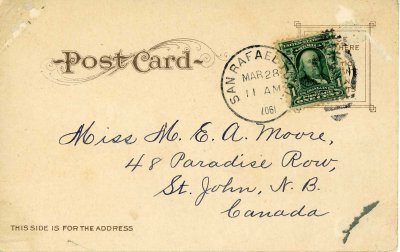 Post Card
HERE
SAN RAFAEL
MAR 28
11 AM
1906
Miss M. E. A. Moore,
48 Paradise Row,
St. John, N. B.
Canada
THIS SIDE IS FOR THE ADDRESS